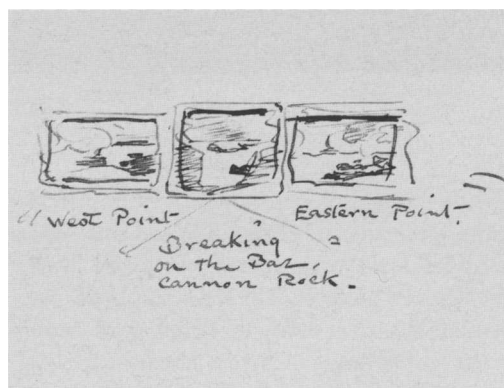 West Point
Eastern Point.
Breaking
on the Bar,
Cannon Rock.